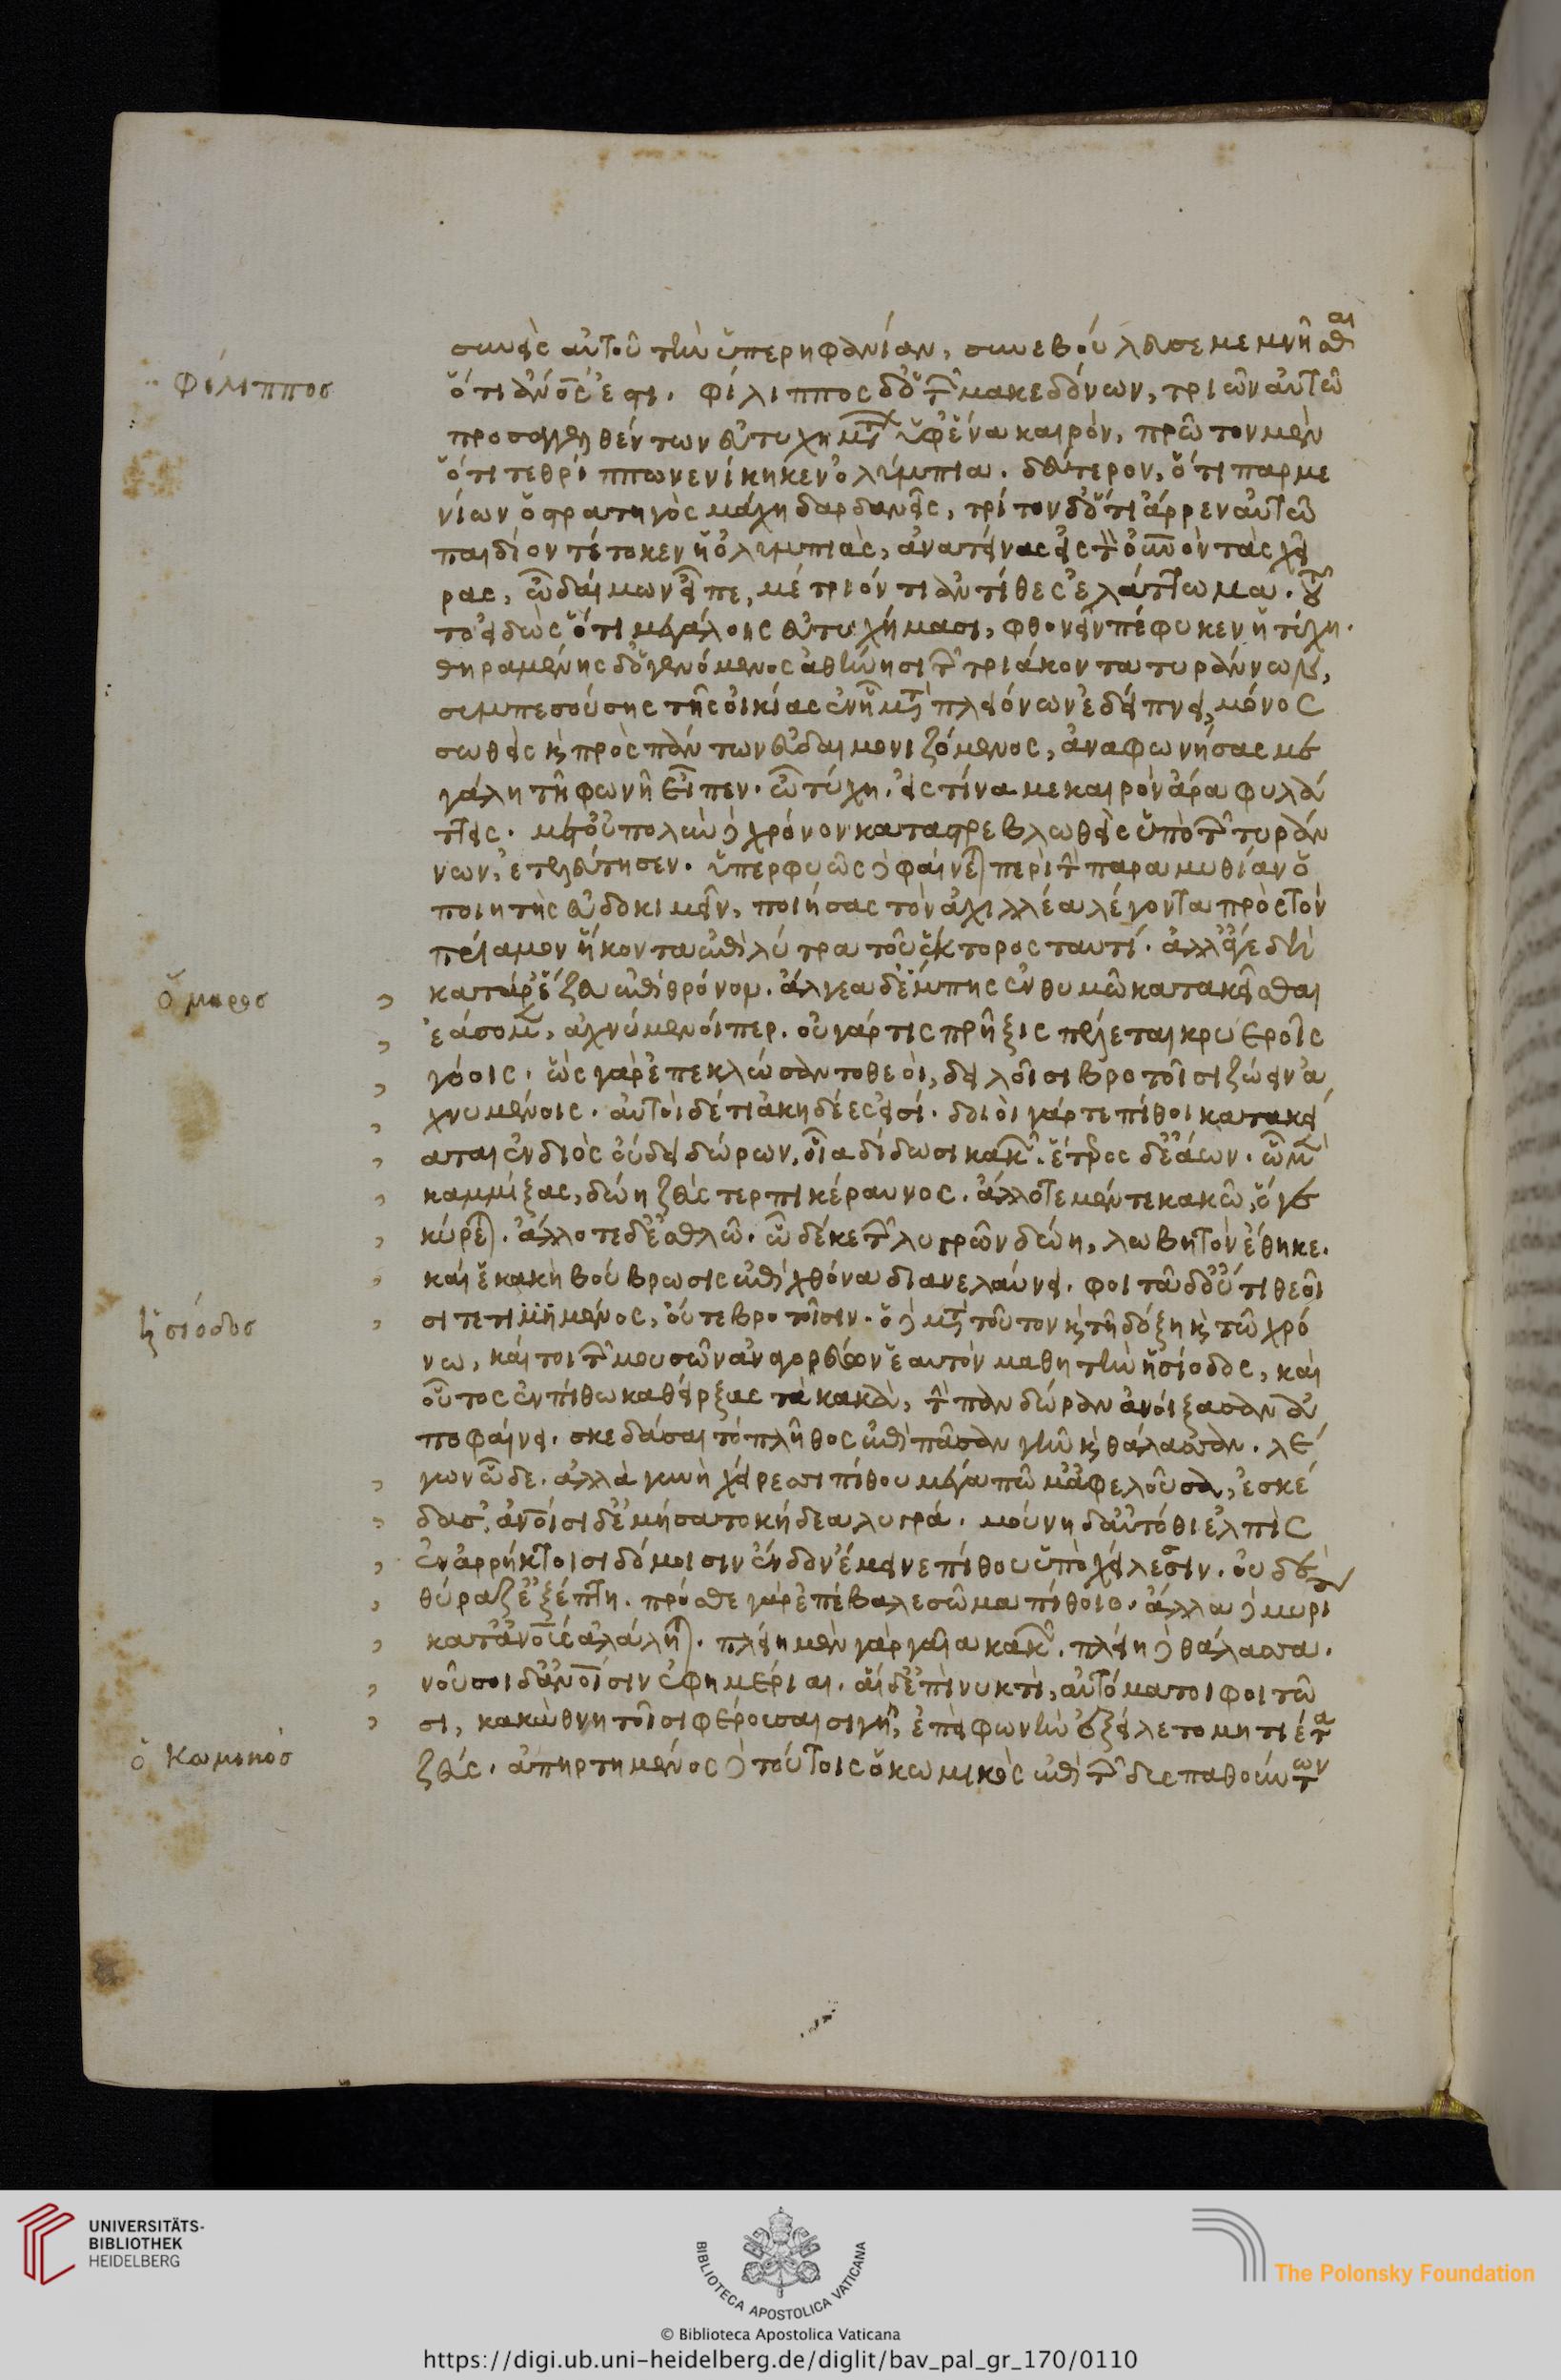 συνεὶς αὐτοῦ τὴν ὑπερηφανίαν, συνεβούλευσε μεμνῆσθαι
Φίλιππος
ὅτι ἄνός ἐστι. φίλιππος δ' ὁ τῶν μακεδόνων, τριῶν αὐτῶ
προσαγγελθέντων εὐτυχημάτων ὑφ' ἕνα καιρὸν, πρῶτον μὲν
ὅτι τεθρίππω νενίκηκεν ὀλύμπια. δεύτερον, ὅτι παρμε
νίων ὁ στρατηγὸς μάχη δαρδανεῖς, τρίτον δ' ὅτι ἄρρεν αὐτῶ
παιδίον τέτοκεν ἡ ὀλυμπιὰς, ἀνατείνας εἰς τὸν οὐνὸν τὰς χεῖ
ρας, ὦ δαῖμον εἶπε, μέτριόν τι ἀντίθες ἐλάττωμα. τοῦ
το εἰδὼς ὅτι μεγάλοις εὐτυχήμασι, φθονεῖν πέφυκεν ἡ τύχη.
θηραμένης δ' ὁ γενόμενος ἀθήνησι τῶν τριάκοντα τυράννων,
συμπεσούσης τῆς οἰκίας ἐν ἧ μετὰ πλειόνων ἐδείπνει, μόνος
σωθεὶς καὶ πρὸς πάντων εὐδαιμονιζόμενος, ἀναφωνήσας με
γάλη τῆ φωνῆ εἶπεν. ὦ τύχη. εἰς τίνα με καιρὸν ἄρα φυλάτ
τεις. μετ' οὐ πολὺν δὲ χρόνον καταστρεβλωθεὶς ὑπὸ τῶν τυράν
νων, ἐτελεύτησεν. ὑπερφυῶς δὲ φαίνεται περὶ τὴν παραμυθίαν ὁ
ποιητὴς εὐδοκιμεῖν, ποιήσας τὸν ἀχιλλέα λέγοντα πρὸς τὸν
πρίαμον ἥκοντα ἐπὶ λύτρα τοῦ ἕκτορος ταυτί. ἀλλ' ἄγε δὴ
ὅμηρος
κατ' ἄρ' ἕζευ ἐπὶ θρόνου. ἄλγεα δ' ἔμπης ἐν θυμῶ κατακεῖσθαι
ἐάσομεν, ἀχνύμενοί περ. οὐ γάρ τις πρῆξις πέλεται κρυεροῖς
γόοις. ὣς γὰρ ἐπεκλώσαντο θεοὶ, δειλοῖσι βροτοῖσι ζώειν ἀ
χνυμένοις. αὐτοὶ δέ τ' ἀκηδέες εἰσί. δοιοὶ γάρ τε πίθοι κατακεί
αται ἐν διὸς οὔδει δώρων, οἷα δίδωσι κακῶν. ἕτερος δὲ ἐάων. ὧ μὲν
καμμίξας, δώη ζεὺς τερπικέραυνος. ἄλλοτε μέν τε κακῶ, ὅγε
κύρεται. ἄλλοτε δ' ἐσθλῶ. ὧ δέ κε τῶν λυγρῶν δώη, λωβητὸν ἔθηκε.
καί ἑ κακὴ βούβρωσις ἐπὶ χθόνα δῖαν ἐλαύνει. φοιτᾶ δ' οὔτι θεοῖ
ἡσιόδος
σι τετιμημένος, οὔτε βροτοῖσιν. ὁ δὲ μετὰ τοῦτον καὶ τῆ δόξη καὶ τῶ χρό
νω, καίτοι τῶν μουσῶν ἀναγορεύων ἑαυτὸν μαθητὴν ἡσίοδος, καὶ
οὗτος ἐν πίθω καθείρξας τὰ κακὰ, τὴν πανδώραν ἀνοίξασαν ἀ
ποφαίνει. σκεδάσαι τὸ πλῆθος ἐπὶ πᾶσαν γῆν καὶ θάλασσαν. λέ
γων ὧδε. ἀλλὰ γυνὴ χείρεσσι πίθου μέγα πῶμ' ἀφελοῦσα, ἐσκέ
δασ'. ἀνοῖσι δ' ἐμήσατο κήδεα λυγρά. μούνη δ' αὐτόθι ἐλπὶς
ἐν ἀρρήκτοισι δόμοισιν ἔνδον ἔμεινε πίθου ὑπὸ χείλεσιν. οὐδὲ
θύραζε ἐξέπτη. πρόσθε γὰρ ἐπέβαλε πῶμα πίθοιο. ἄλλα δὲ μυρί
κατ' ἀνούς ἀλάληται. πλείη μὲν γὰρ γαῖα κακῶν. πλείη δὲ θάλασσα.
νοῦσοι δ' ἀνοῖσιν ἐφημέριαι. αἱ δ' ἐπὶ νυκτὶ, αὐτόματοι φοιτῶ
σι, κακὰ θνητοῖσι φέρουσαι σιγῆ, ἐπεὶ φωνὴν ἐξείλετο μητιέτα
ὁ κωμικός
ζεύς. ἀπηρτημένως δὲ τούτοις ὁ κωμικὸς ἐπὶ τῶν δυσπαθούντων
UNIVERSITÄTS-
BIBLIOTHEK
HEIDELBERG
BIBLIOTECA APOSTOLICA VATICANA
The Polonsky Foundation
© Biblioteca Apostolica Vaticana
https://digi.ub.uni-heidelberg.de/diglit/bav_pal_gr_170/0110